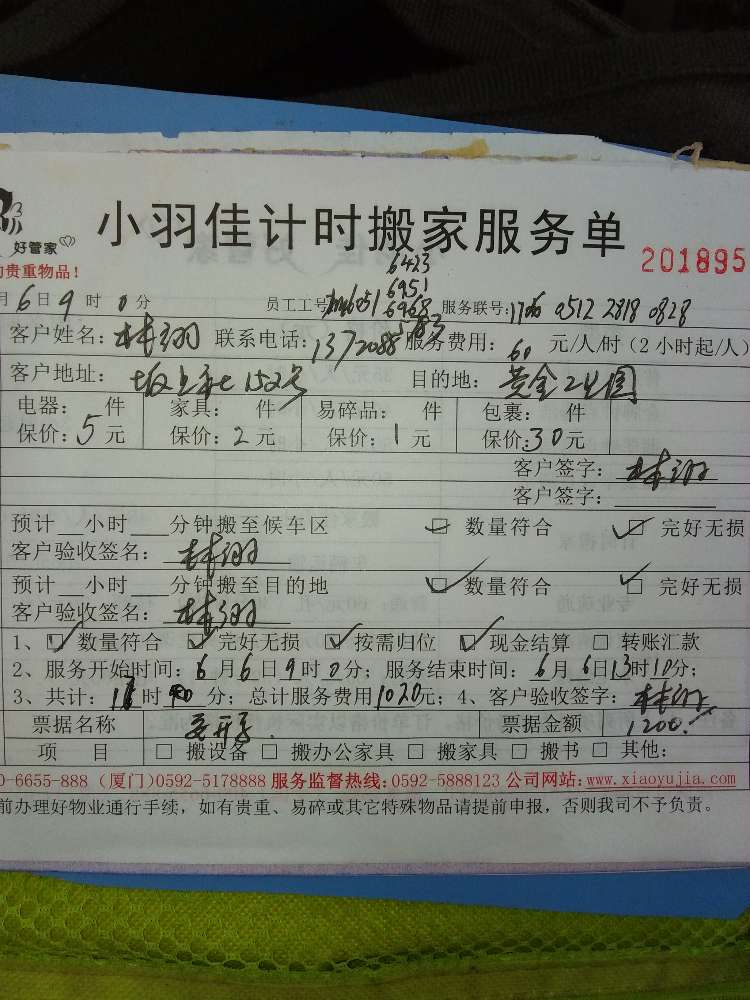 小羽佳计时搬家服务单
好管家
贵重物品！
201895
6423
6951
月6日9时0分 员工工号 6051 6968 服务联号：1706 0512 2818 0828
客户姓名：林羽 联系电话：1372088 服务费用：60元/人/时（2小时起/人）
客户地址：坂上社152号 目的地：黄金工业园
电器： 件 家具： 件 易碎品： 件 包裹： 件
保价：5元 保价：2元 保价：1元 保价：30元
客户签字：林羽
客户签字：
预计__小时___分钟搬至候车区 ☑ 数量符合 ☑ 完好无损
客户验收签名：林羽
预计__小时___分钟搬至目的地 ☑ 数量符合 ☑ 完好无损
客户验收签名：林羽
1、☑ 数量符合 ☑ 完好无损 ☑ 按需归位 ☑ 现金结算 □ 转账汇款
2、服务开始时间：6月6日9时0分；服务结束时间：6月6日13时10分；
3、共计： 时 分；总计服务费用1020元；4、客户验收签字：林羽
票据名称 票据金额 1200.
项 目 □ 搬设备 □ 搬办公家具 □ 搬家具 □ 搬书 □ 其他：
0-6655-888（厦门）0592-5178888 服务监督热线：0592-5888123 公司网站：www.xiaoyujia.com
前办理好物业通行手续，如有贵重、易碎或其它特殊物品请提前申报，否则我司不予负责。